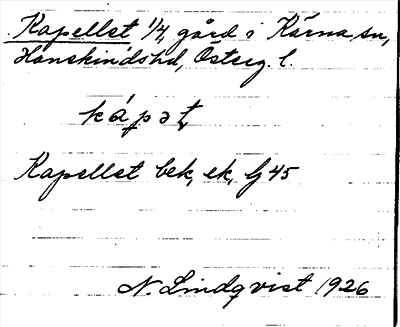 Kapellet 1/4 gård i Kärna sn,
Hanekinds hd, Österg. l.
kápət
Kapellet bek, ek, Gj 45
N. Lindqvist 1926